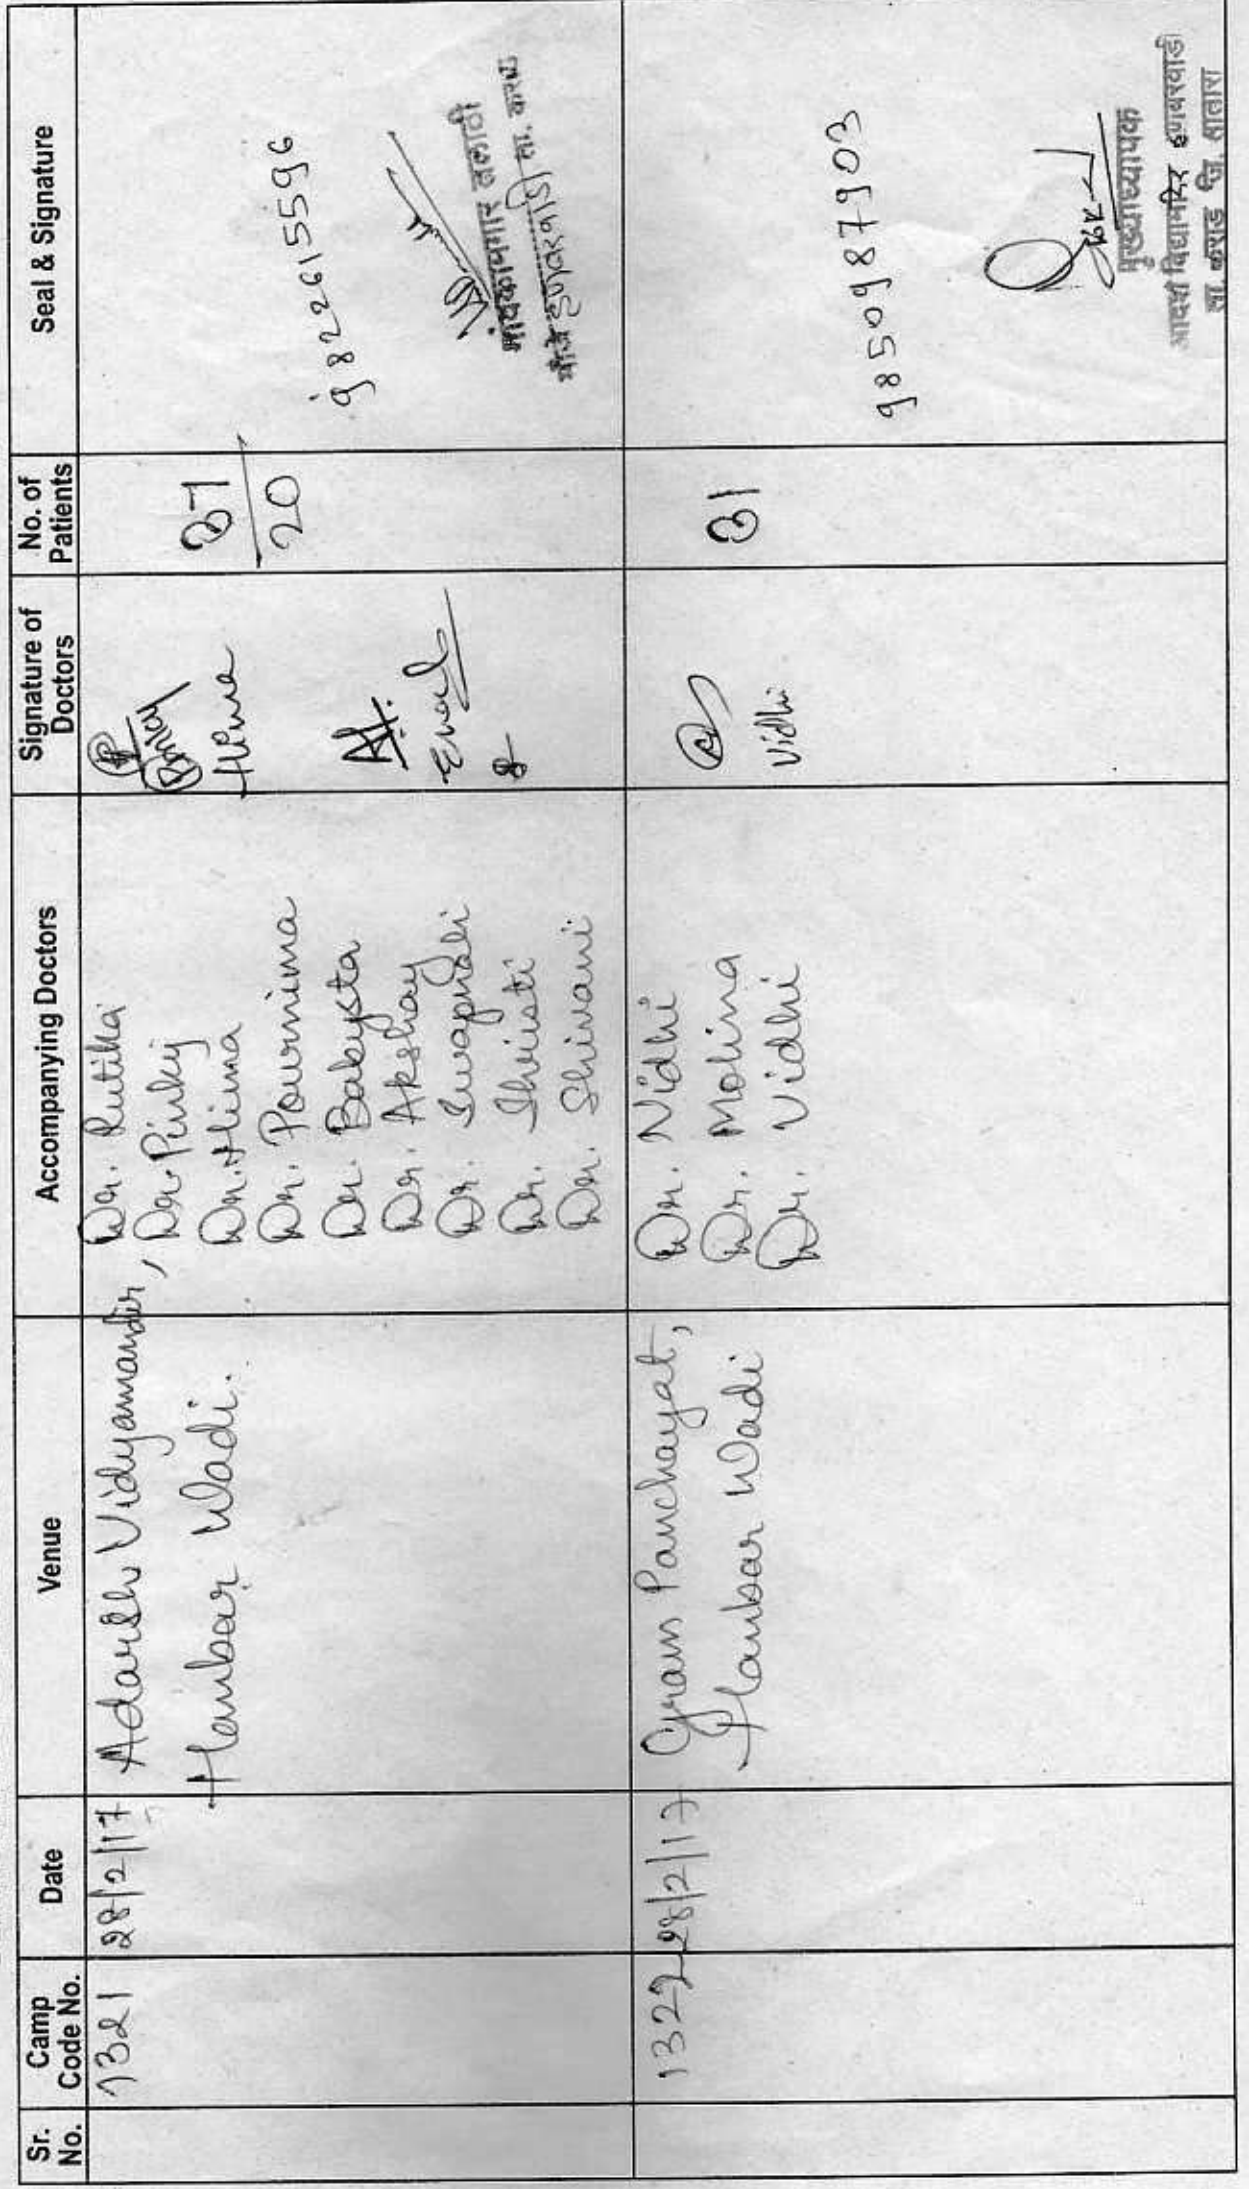 Sr. No.
Camp Code No.
Date
Venue
Accompanying Doctors
Signature of Doctors
No. of Patients
Seal & Signature
1321
28/2/17
Adarsh Vidyamandir,
Hanbar Wadi.
Dr. Rutika
Dr. Pinky
Dr. Hima
Dr. Pournima
Dr. Bakysta
Dr. Akshay
Dr. Swapnali
Dr. Shristi
Dr. Shivani
Pinky
Hima
37
20
9822615596
1322
28/2/17
Gram Panchayat,
Hanbar Wadi
Dr. Nidhi
Dr. Mohina
Dr. Vidhi
Vidhi
31
9850987903
मुख्याध्यापक
आदर्श विद्यामंदिर हणबरवाडी
ता. कराड जि. सातारा